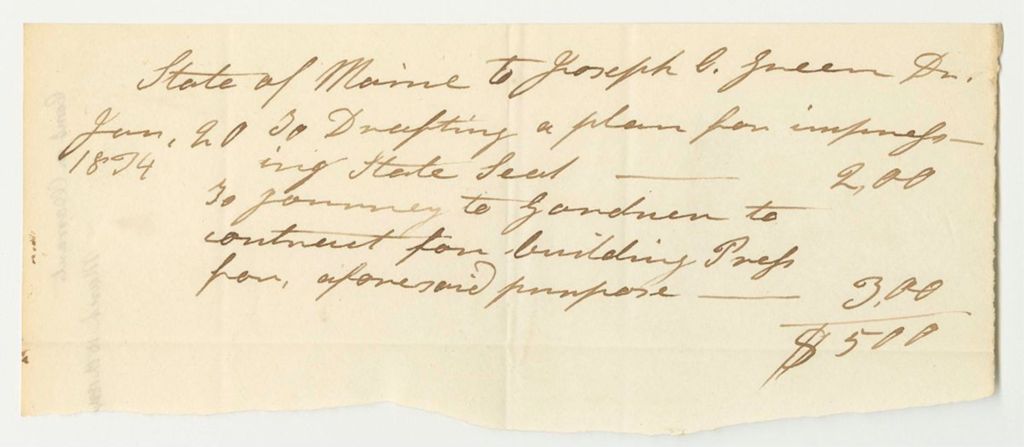 State of Maine to Joseph C. Green Dr.
Jan, 20 To Drafting a plan for impress-
1834 ing State Seal — 2,00
To Journey to Gardner to
contract for building Press
for, aforesaid purpose — 3,00
$ 500